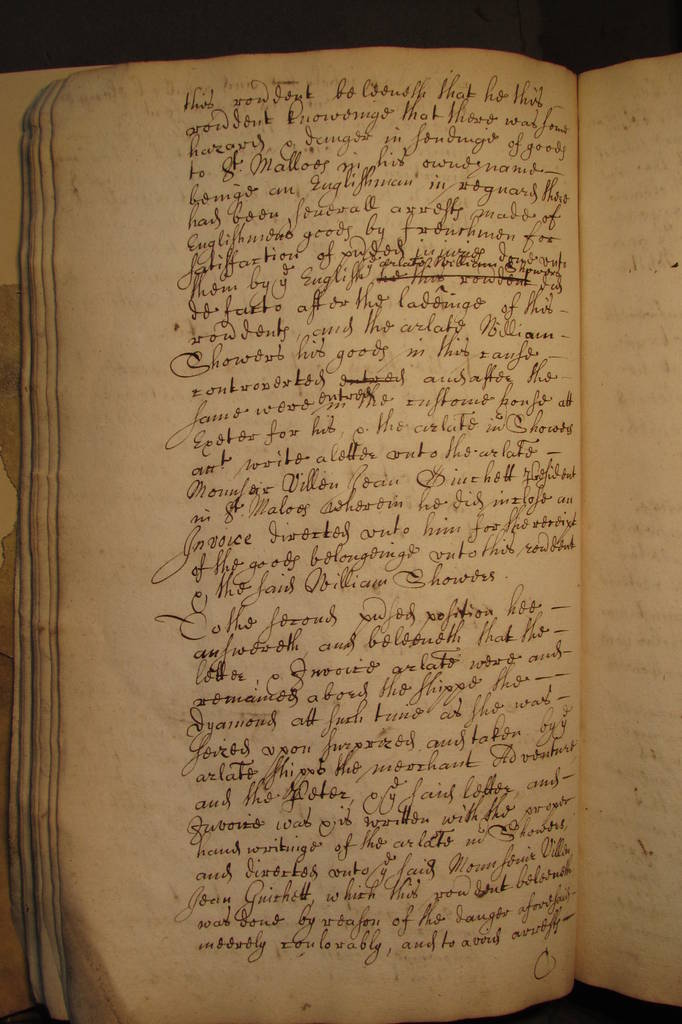 this rondent beleeveth that he this
rondent knoweinge that there was some
hazard & danger in sendinge of goods
to St. Malloes in his owne name
beinge an Englishman in regnard there
had been severall arrests made of
Englishmens goods by frenchmen for
satisfaction of pnded injuries done unto
them by ye English arlate William Showers he this rondent did
de facto after the ladeinge of this
rondents, and the arlate William
Showers his goods in this cause
controverted entred and after the
same were entred in the custome house att
Exeter for his, & the arlate Showers
acct write a letter unto the arlate
Mounseir Villen Jean Guichett Resident
in St. Maloes wherein he did inclose an
Invoice directed unto him for the receipt
of the goods belongeinge unto this rondent
& the said William Showers.
To the second pnsed position hee
answereth, and beleeveth that the
letter, & Invoice arlate were and
remained abord the shippe the
Dyamond att such tyme as she was
seized upon surprized and taken by ye
arlate shipps the merchant Adventure
and the Peter, & ye said letter, and
Invoice was & is written with the proper
hand writinge of the arlate Showers,
and directed unto ye said Mounseuir Villen
Jean Guichett, which this rondent beleeveth
was done by reason of the danger aforesaid
meerely coulorably, and to avoid arrests